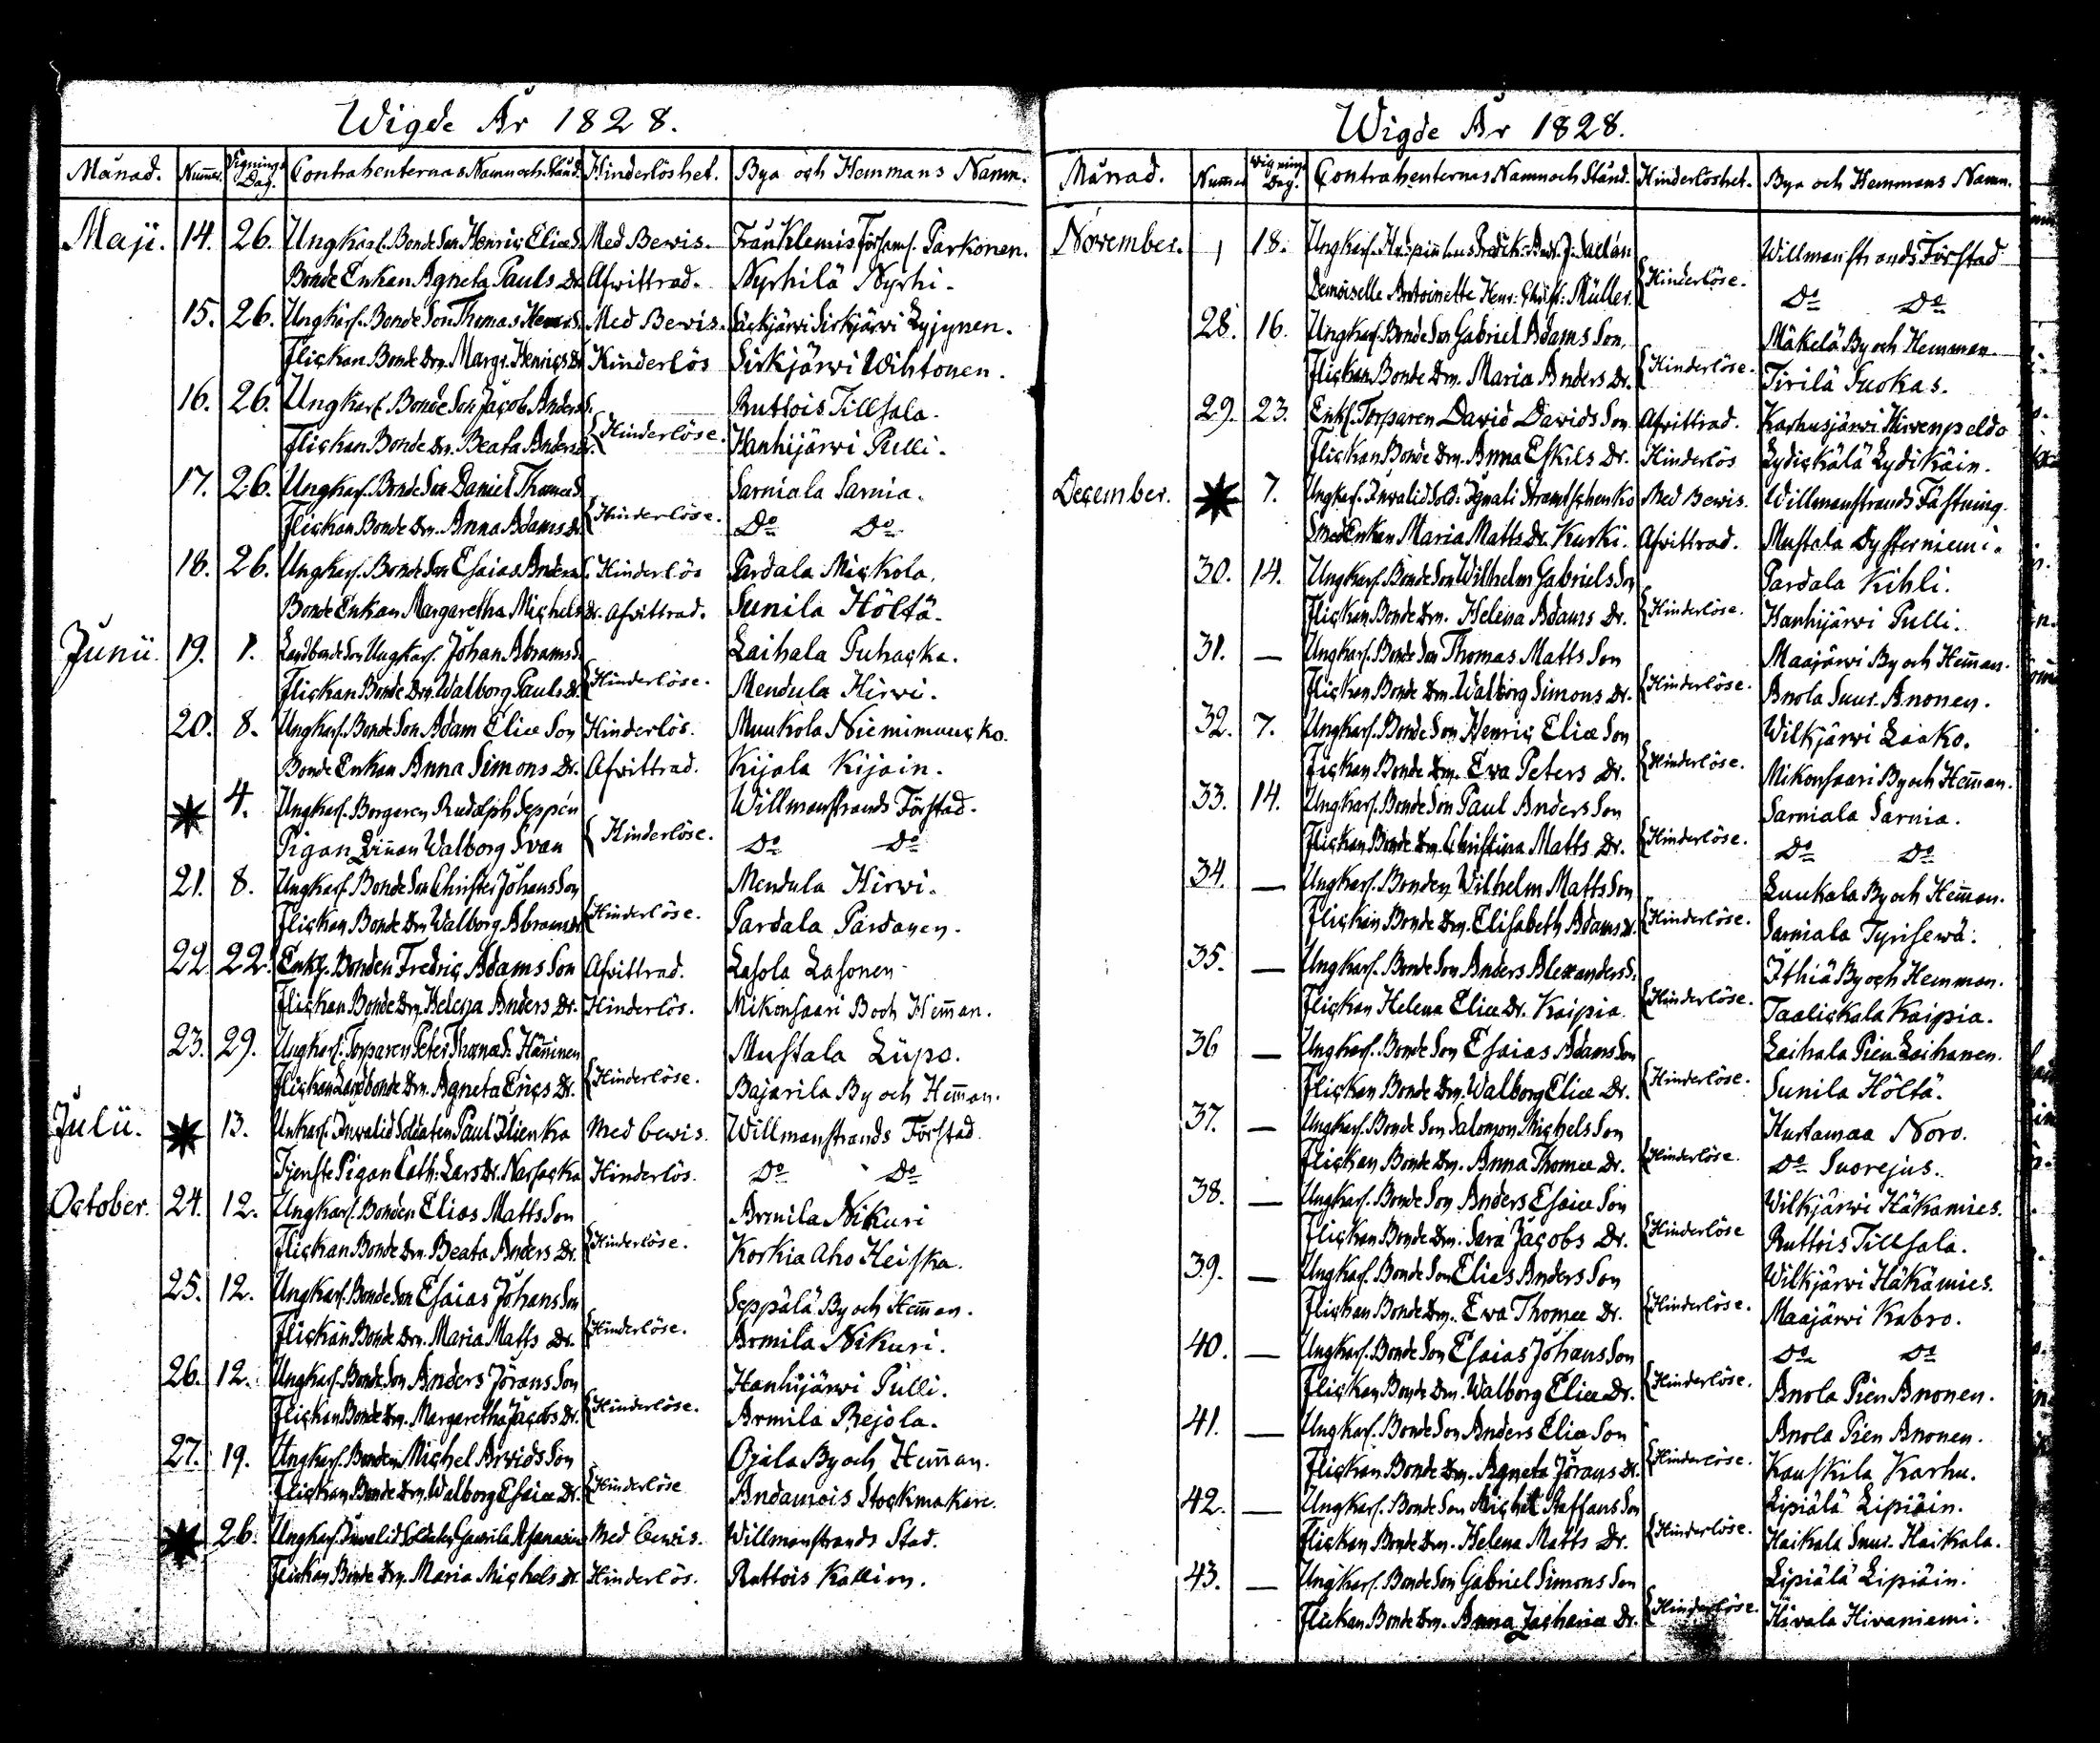 Wigde År 1828.
Månad. Num̅er. Vignings Dag. Contrahenternas Namn och Stånd. Hinderlöshet. Bya och Hemmans Namn.
Maji. 14. 26. Ungkarl. Bonde Son Henric Eliæ S. Med Bewis. Från Klemis Församl. Parkonen.
Bonde Enkan Agneta Pauls Dr. Afwittrad. Nyrhilä Nyrhi.
15. 26. Ungkarl. Bonde Son Thomas Henr. S. Med Bewis. Säckjärvi Sirkjärvi Lyjynen.
Flickan Bonde Drn. Margr. Henrics Dr. Hinderlös Sirkjärwi Wihtonen.
16. 26. Ungkarl. Bonde Son Jacob Anders S. Ruttois Tillsala.
Flickan Bonde Drn. Beata Anders Dr. {Hinderlöse. Hanhijärwi Pulli.
17. 26. Ungkarl. Bonde Son Daniel Thomæ S. Sarniala Sarnia.
Flickan Bonde Drn. Anna Adams Dr. {Hinderlöse. Do Do
18. 26. Ungkarl. Bonde Son Esaias Anders S. Hinderlös Pardala Mickola.
Bonde Enkan Margaretha Michels Dr. Afwittrad. Sunila Höltä.
Junii. 19. 1. Landbonde Son Ungkarl. Johan Abrams S. Laihala Puhacka.
Flickan Bonde Drn. Walborg Pauls Dr. {Hinderlöse. Mendula Hirwi.
20. 8. Ungkarl. Bonde Son Adam Eliæ Son Hinderlös. Muukola Nieminuucko.
Bonde Enkan Anna Simons Dr. Afwittrad. Kijala Kijain.
4. Ungkarl. Borgaren Rudolph Seppén Willmanstrands Förstad.
Pigan Qvin̅an Walborg Svan {Hinderlöse. Do Do
21. 8. Ungkarl. Bonde Son Christer Johans Son Mendula Hirwi.
Flickan Bonde Drn Walborg Abrams Dr {Hinderlöse. Pardala Pardanen.
22. 22. Enkl. Bonden Fredric Adams Son Afwittrad. Lasola Lasonen
Flickan Bonde Drn Helena Anders Dr. Hinderlös. Mikonsaari B och Hem̅an.
23. 29. Ungkarl. Torparen Peter Thomæ S. Hänninen Mustala Lüpo.
Flickan Landbonde Drn. Agneta Erics Dr. {Hinderlöse. Bajarila By och Hem̅an.
Julii. 13. Unkarl. Invalid Soldaten Paul Ilienka Med bewis. Willmanstrands Förstad.
Tjenste Pigan Cath: Lars Dr. Narsacka Hinderlös. Do Do
October. 24. 12. Ungkarl. Bonden Elias Matts Son Armila Nikuri
Flickan Bonde Drn. Beata Anders Dr. {Hinderlöse. Korkia Aho Heiska.
25. 12. Ungkarl. Bonde Son Esaias Johans Son Seppälä By och Hem̅an.
Flickan Bonde Drn. Maria Matts Dr. {Hinderlöse. Armila Nikuri.
26. 12. Ungkarl. Bonde Son Anders Jörans Son Hanhijärwi Pulli.
Flickan Bonde Drn. Margaretha Jacobs Dr. {Hinderlöse. Armila Rejola.
27. 19. Ungkarl. Bonden Michel Arvids Son Ojala By och Hem̅an.
Flickan Bonde Drn. Walborg Esaiæ Dr. {Hinderlöse Andamois Stockmakare.
26. Ungkarl. Invalid Soldaten Gavrila Afanasiew Med bewis. Willmanstrands Stad.
Flickan Bonde Drn. Maria Michels Dr. Hinderlös. Ruttois Kallion.
Wigde År 1828.
Månad. Num̅er Wignings Dag. Contrahenternas Namn och Stånd. Hinderlöshet. Bya och Hemmans Namn.
November. 1 18. Ungkarl. Willmanstrands Förstad
Demoiselle Antoinette Henr: Müller. {Hinderlöse. Do Do
28. 16. Ungkarl. Bonde Son Gabriel Adams Son, Mäkelä By och Hemman.
Flickan Bonde Drn. Maria Anders Dr. {Hinderlöse. Tirilä Suokas.
29. 23. Enkl. Torparen David Davids Son Afwittrad. Karhusjärwi Hirvenpeldo
Flickan Bonde Drn. Anna Eskils Dr. Hinderlös Lydickälä Lydikäin.
December. 7. Ungkarl. Invalid Sold: Ignati Stramtschenko Med Bewis. Willmanstrands Fästning.
Smed Enkan Maria Matts Dr. Kurki. Afwittrad. Mustala Dysterniemi.
30. 14. Ungkarl. Bonde Son Wilhelm Gabriels Son Pardala Kihli.
Flickan Bonde Drn. Helena Adams Dr. {Hinderlöse. Hanhijärwi Pulli.
31. — Ungkarl. Bonde Son Thomas Matts Son Maajärwi By och Hem̅an.
Flickan Bonde Drn. Walborg Simons Dr. {Hinderlöse. Anola Suur. Anonen.
32. 7. Ungkarl. Bonde Son Henric Eliæ Son Wilkjärwi Laako.
Flickan Bonde Drn. Ewa Peters Dr. {Hinderlöse. Mikonsaari By och Hem̅an.
33. 14. Ungkarl. Bonde Son Paul Anders Son Sarniala Sarnia.
Flickan Bonde Drn. Christina Matts Dr. {Hinderlöse. Do Do
34. — Ungkarl. Bonden Wilhelm Matts Son Luukala By och Hem̅an.
Flickan Bonde Drn. Elisabeth Adams Dr. {Hinderlöse. Sarniala Tyrisewä.
35. — Ungkarl. Bonde Son Anders Alexanders S. Ithiä By och Hemman.
Flickan Helena Eliæ Dr. Kaipia. {Hinderlöse. Taalickala Kaipia.
36 — Ungkarl. Bonde Son Esaias Adams Son Laihala Pien Laihanen.
Flickan Bonde Drn. Walborg Eliæ Dr. {Hinderlöse. Sunila Höltä.
37. — Ungkarl. Bonde Son Salomon Michels Son Hurtamaa Noro.
Flickan Bonde Drn. Anna Thomæ Dr. {Hinderlöse. Do Suorejus.
38. — Ungkarl. Bonde Son Anders Esaiæ Son Wilkjärwi Häkämies.
Flickan Bonde Drn. Sara Jacobs Dr. {Hinderlöse Ruttois Tillsala.
39. — Ungkarl. Bonde Son Elias Anders Son Wilkjärwi Häkämies.
Flickan Bonde Drn. Ewa Thomæ Dr. {Hinderlöse. Maajärwi Kabro.
40. — Ungkarl. Bonde Son Esaias Johans Son Do Do
Flickan Bonde Drn. Walborg Eliæ Dr. {Hinderlöse. Anola Pien Anonen.
41. — Ungkarl. Bonde Son Anders Eliæ Son Anola Pien Anonen.
Flickan Bonde Drn. Agneta Jörans Dr. {Hinderlöse. Kauskila Karhu.
42. — Ungkarl. Bonde Son Michel Staffans Son Lipiälä Lipiäin.
Flickan Bonde Drn. Helena Matts Dr. {Hinderlöse. Haikala Suur. Haikala.
43. — Ungkarl. Bonde Son Gabriel Simons Son Lipiälä Lipiäin.
Flickan Bonde Drn. Anna Zachariæ Dr. {Hinderlöse. Hivala Hivaniemi.